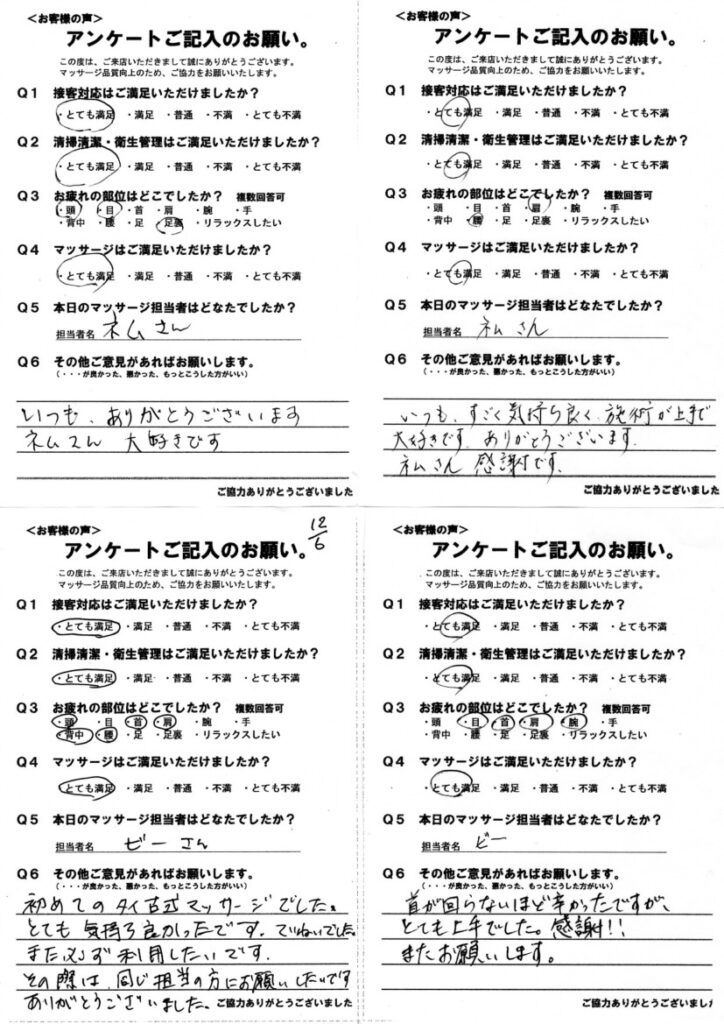 <お客様の声>
アンケートご記入のお願い。
この度は、ご来店いただきまして誠にありがとうございます。
マッサージ品質向上のため、ご協力をお願いいたします。
Q1 接客対応はご満足いただけましたか?
・とても満足 ・満足 ・普通 ・不満 ・とても不満
Q2 清掃清潔・衛生管理はご満足いただけますか?
・とても満足 ・満足 ・普通 ・不満 ・とても不満
Q3 お疲れの部位はどこでしたか? 複数回答可
・頭 ・目 ・首 ・肩 ・腕 ・手
・背中 ・腰 ・足 ・足裏 ・リラックスしたい
Q4 マッサージはご満足いただけましたか?
・とても満足 ・満足 ・普通 ・不満 ・とても不満
Q5 本日のマッサージ担当者はどなたでしたか?
担当者名 ネムさん
Q6 その他ご意見があればお願いします。
(・・・が良かった、悪かった、もっとこうした方がいい)
いつも、ありがとうございます
ネムさん 大好きです
ご協力ありがとうございました
<お客様の声>
アンケートご記入のお願い。
この度は、ご来店いただきまして誠にありがとうございます。
マッサージ品質向上のため、ご協力をお願いいたします。
Q1 接客対応はご満足いただけましたか?
・とても満足 ・満足 ・普通 ・不満 ・とても不満
Q2 清掃清潔・衛生管理はご満足いただけますか?
・とても満足 ・満足 ・普通 ・不満 ・とても不満
Q3 お疲れの部位はどこでしたか? 複数回答可
・頭 ・目 ・首 ・肩 ・腕 ・手
・背中 ・腰 ・足 ・足裏 ・リラックスしたい
Q4 マッサージはご満足いただけましたか?
・とても満足 ・満足 ・普通 ・不満 ・とても不満
Q5 本日のマッサージ担当者はどなたでしたか?
担当者名 ネムさん
Q6 その他ご意見があればお願いします。
(・・・が良かった、悪かった、もっとこうした方がいい)
いつも、すごく気持ち良く、施術が上手で
大好きです。ありがとうございます。
ネムさん 感謝です。
ご協力ありがとうございました
12/6
<お客様の声>
アンケートご記入のお願い。
この度は、ご来店いただきまして誠にありがとうございます。
マッサージ品質向上のため、ご協力をお願いいたします。
Q1 接客対応はご満足いただけましたか?
・とても満足 ・満足 ・普通 ・不満 ・とても不満
Q2 清掃清潔・衛生管理はご満足いただけますか?
・とても満足 ・満足 ・普通 ・不満 ・とても不満
Q3 お疲れの部位はどこでしたか? 複数回答可
・頭 ・目 ・首 ・肩 ・腕 ・手
・背中 ・腰 ・足 ・足裏 ・リラックスしたい
Q4 マッサージはご満足いただけましたか?
・とても満足 ・満足 ・普通 ・不満 ・とても不満
Q5 本日のマッサージ担当者はどなたでしたか?
担当者名 ビーさん
Q6 その他ご意見があればお願いします。
(・・・が良かった、悪かった、もっとこうした方がいい)
初めてのタイ古式マッサージでした。
とても気持ち良かったです。ていねいでした。
また必ず利用したいです。
その際は、同じ担当の方にお願いしたいです
ありがとうございました。
ご協力ありがとうございました
<お客様の声>
アンケートご記入のお願い。
この度は、ご来店いただきまして誠にありがとうございます。
マッサージ品質向上のため、ご協力をお願いいたします。
Q1 接客対応はご満足いただけましたか?
・とても満足 ・満足 ・普通 ・不満 ・とても不満
Q2 清掃清潔・衛生管理はご満足いただけますか?
・とても満足 ・満足 ・普通 ・不満 ・とても不満
Q3 お疲れの部位はどこでしたか? 複数回答可
・頭 ・目 ・首 ・肩 ・腕 ・手
・背中 ・腰 ・足 ・足裏 ・リラックスしたい
Q4 マッサージはご満足いただけましたか?
・とても満足 ・満足 ・普通 ・不満 ・とても不満
Q5 本日のマッサージ担当者はどなたでしたか?
担当者名 ビー
Q6 その他ご意見があればお願いします。
(・・・が良かった、悪かった、もっとこうした方がいい)
首が回らないほど辛かったですが、
とても上手でした。感謝!!
またお願いします。
ご協力ありがとうございました